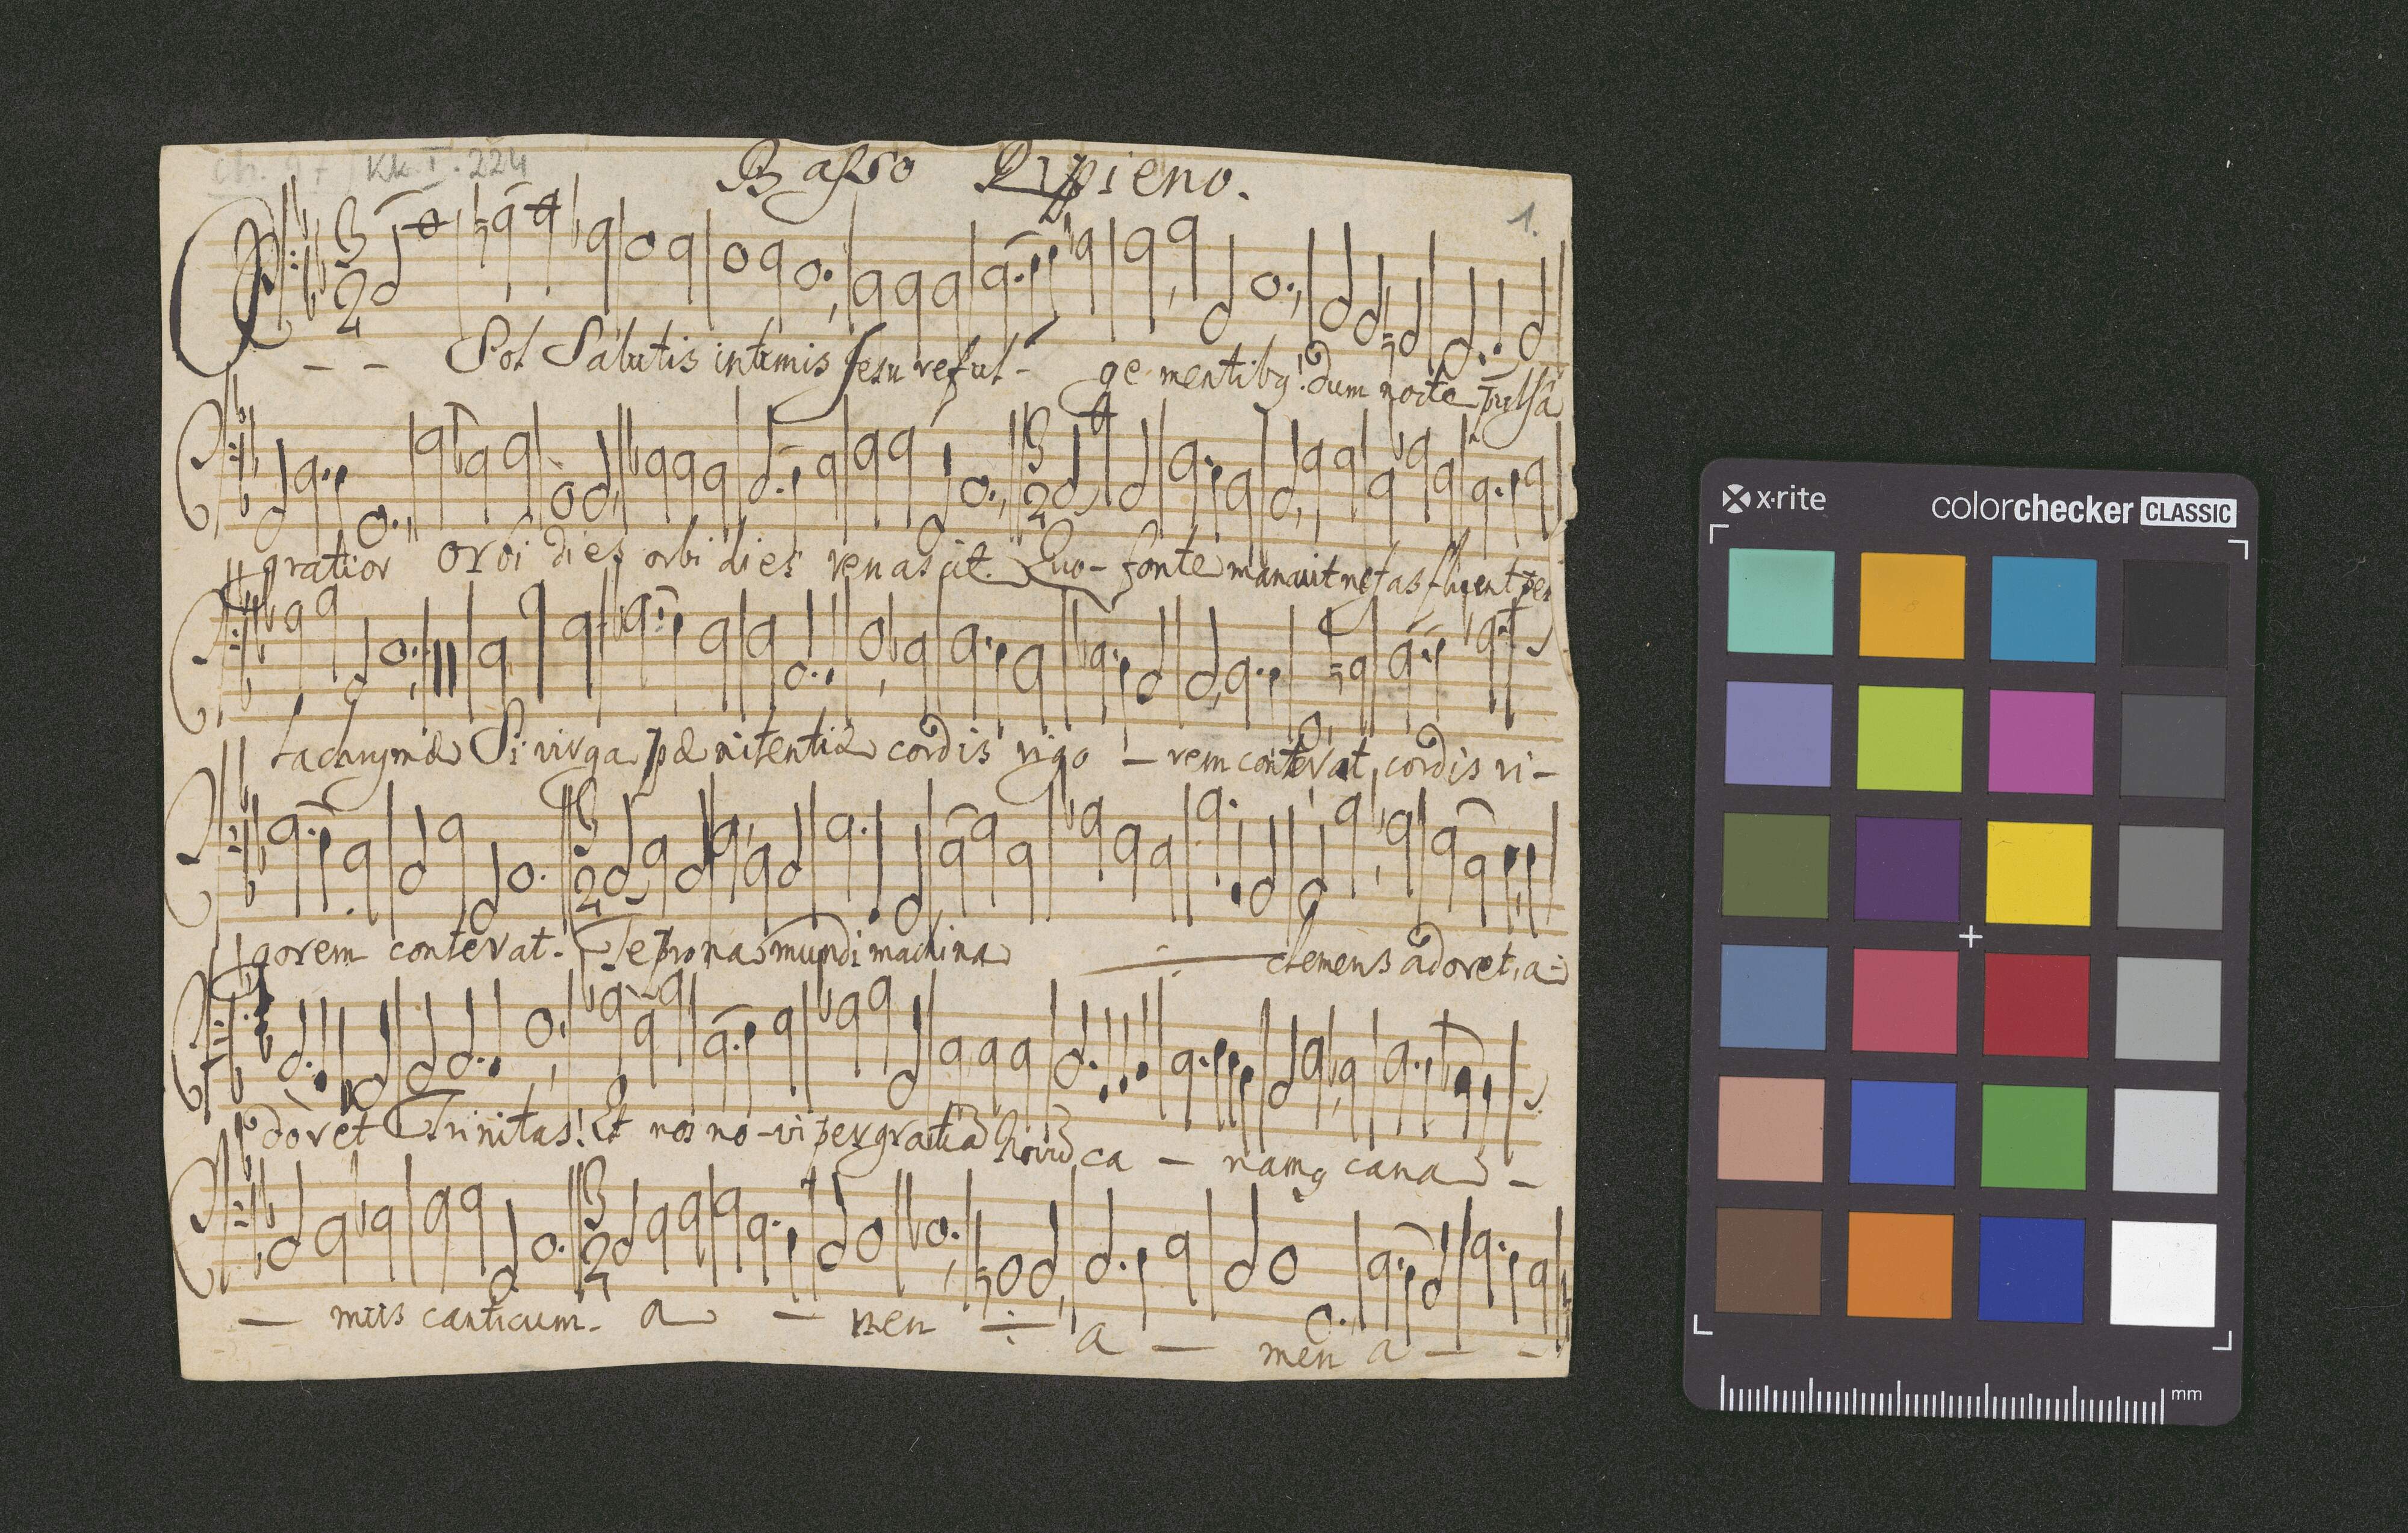 Kk. I. 224
Basso Ripieno.
1.
3 2
– – Sol Salutis intimis Jesu reful- ge mentibq! dum nocte pulsâ
3 2
gratior orbi dies orbi dies renascit. Quo- fonte manavit nefas fluent per
Lachrymæ Si virga pænitentiæ cordis rigo – rem conterat, cordis ri-
3 2
gorem conterat. Te prona mundi machina clemens adoret, a-
doret Trinitas! Et nos no-vi per gratiã ca – namq cana –
3 2
– mus canticum. a – men a – men a – –
x·rite
colorchecker CLASSIC
mm